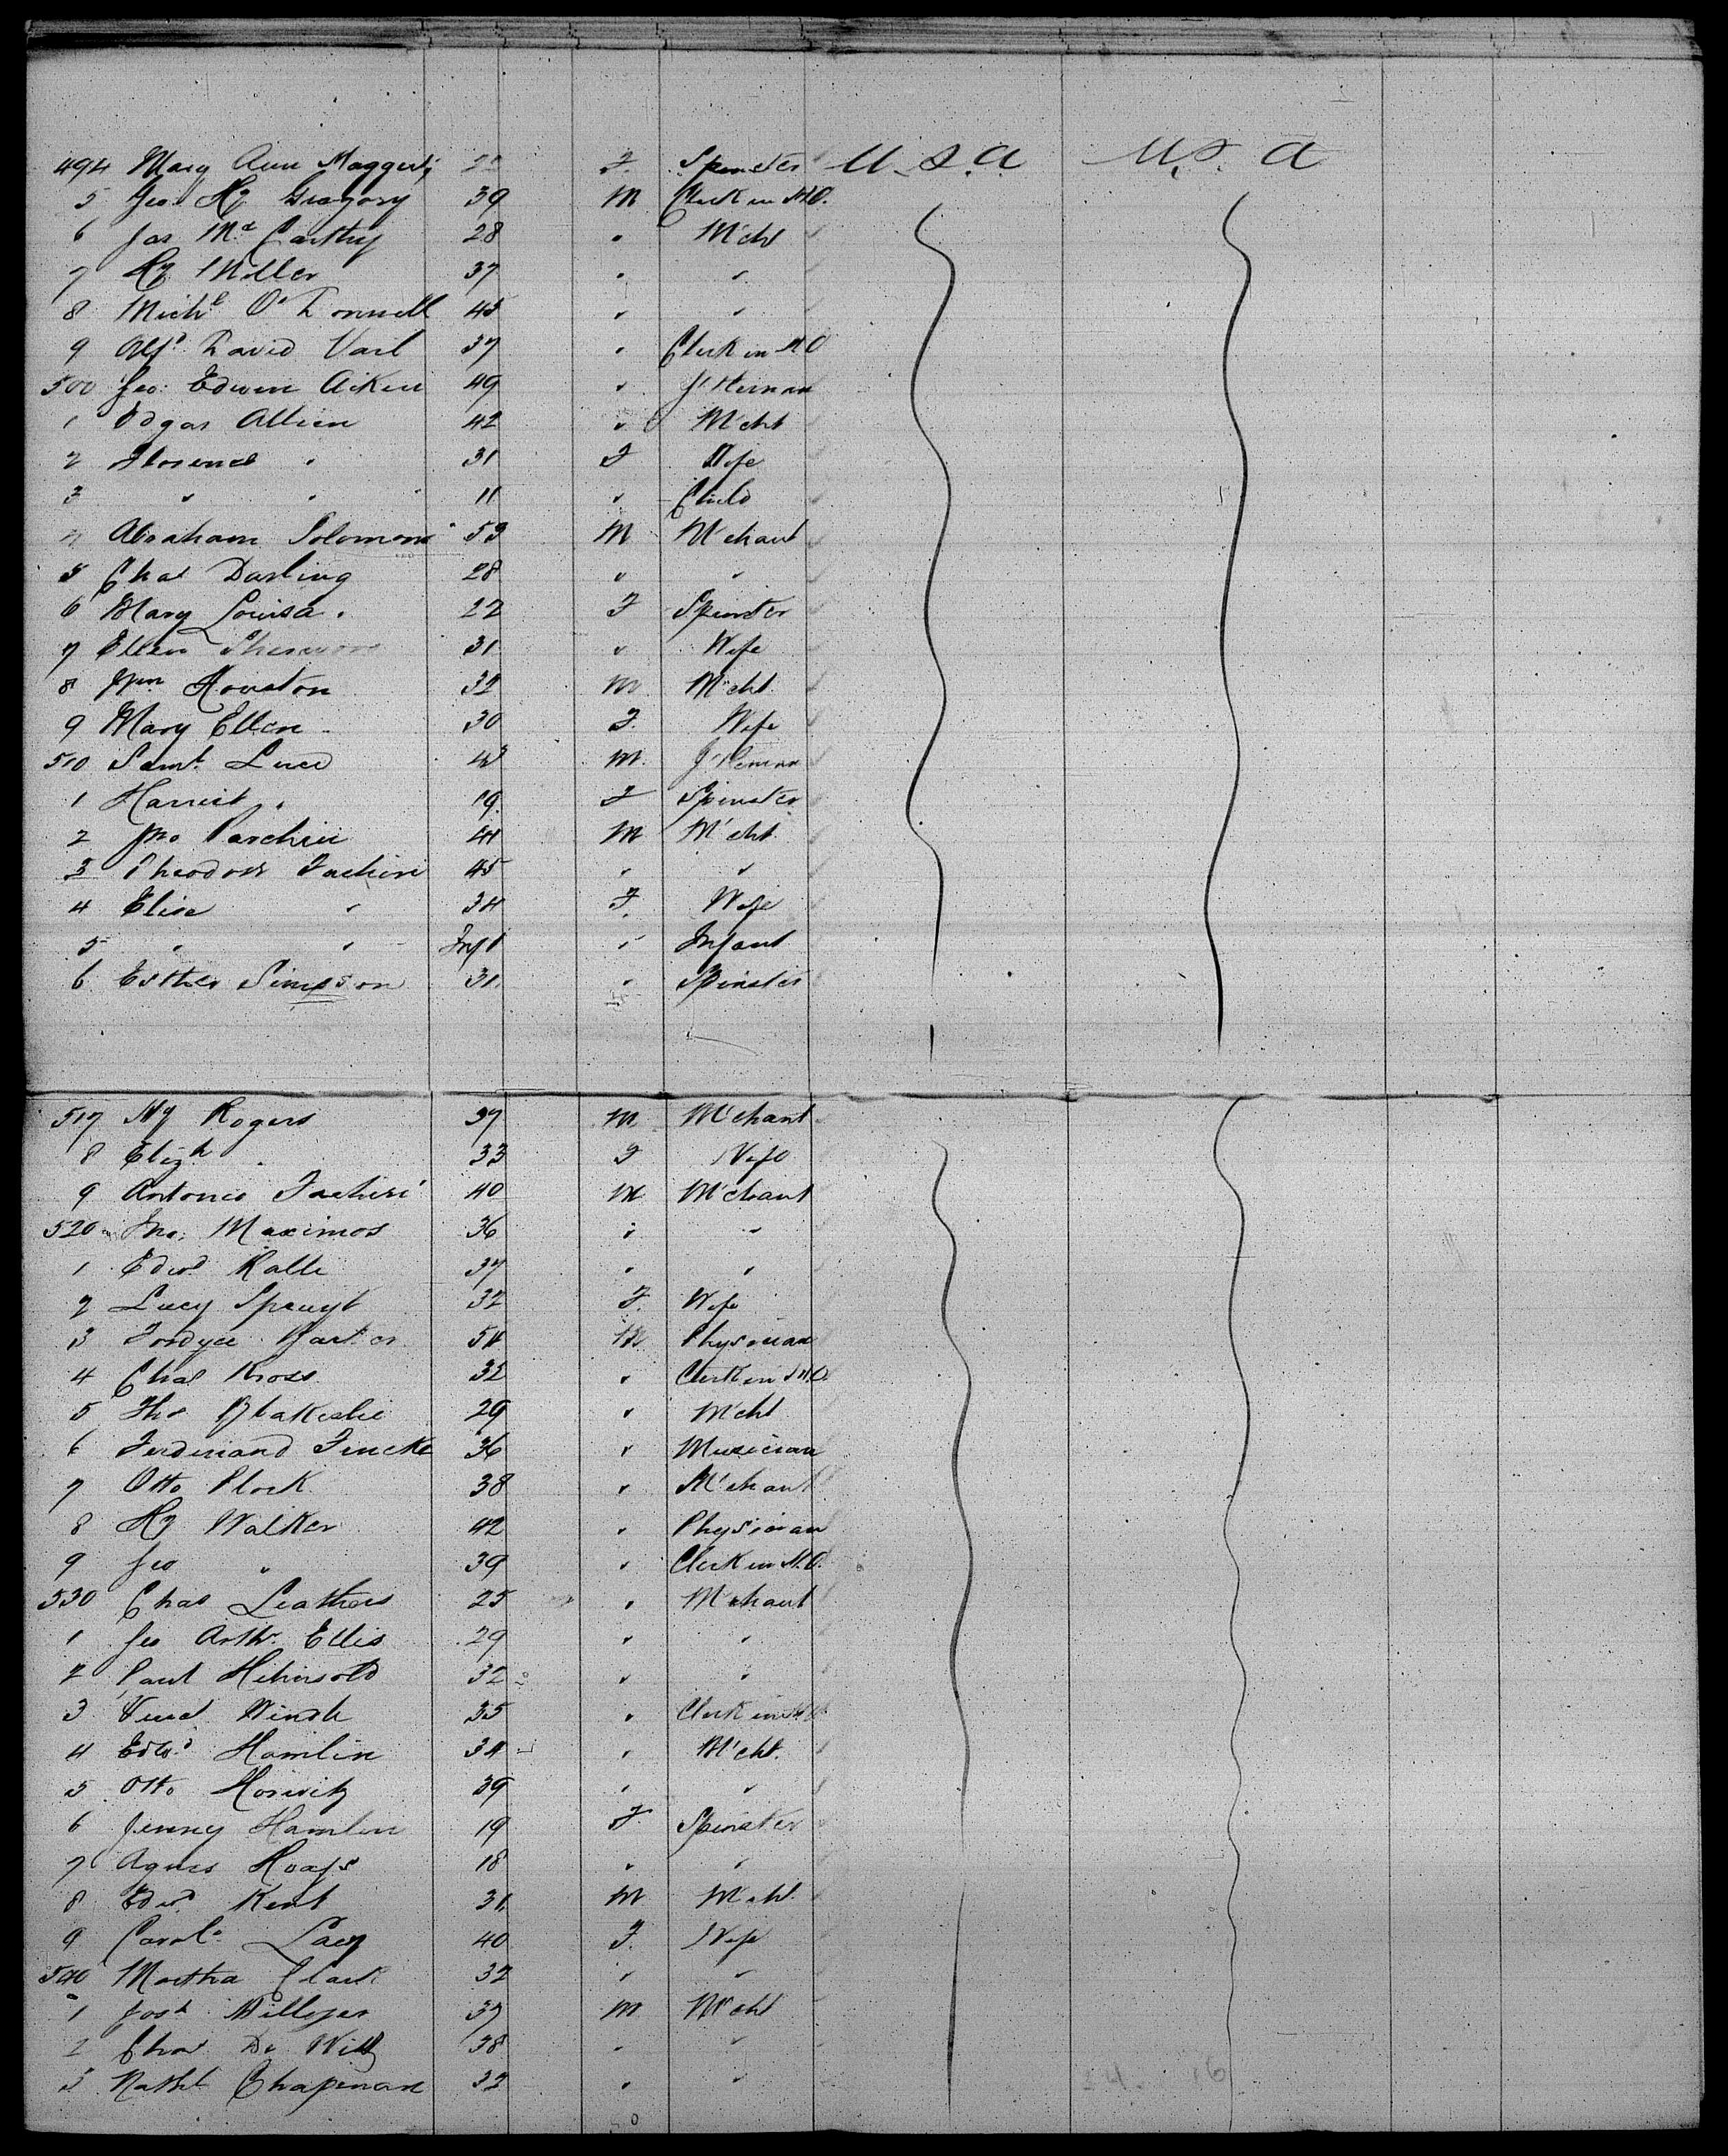 494 Mary Ann F. Spinster U.S.A U.S.A
5 Geo. Hy Gregory 39 M Clerk in H.O.
6 Jas Mc Carthy 28 " Mcht
7 Hy Miller 37 " "
8 Michl O'Donnell 45 " "
9 Alfd David Vail 37 " Clerk in H.O
500 Geo: Edwin Aiken 49 " G'tleman
1 Edgar Allien 42 " M'cht
2 Florence " 31 F Wife
3 " " 11 " Child
4 Abraham Solomons 53 M M'chant
5 Chas Darling 28 " "
6 Mary Louisa " 22 F Spinster
7 Ellen 31 " Wife
8 Wm Houston 32 M M'cht
9 Mary Ellen " 30 F. Wife
510 Saml Luce M. G'tleman
1 Harriet " 19 F Spinster
2 Jno 41 M M'cht
3 Theodore Fachiri 45 " "
4 Elise " 34 F. Wife
5 " " Inft " Infant
6 Esther Simpson 31 " Spinster
517 Hy Rogers 37 M M'chant
8 Elizh " 33 F Wife
9 Antonio Fachiri 40 M M'chant
520 Jno. Maximos 36 " "
1 Edwd Ralli 37 " "
2 Lucy Spruyt 32 F. Wife
3 Fordyce Barker 54 M Physician
4 Chas Kross 32 " Clerk in H.O.
5 Ths Blakeslie 29 " M'cht
6 Ferdinand Fincke 36 " Musician
7 Otto Plock 38 " M'chant
8 Hy Walker 42 " Physician
9 Geo " 39 " Clerk in H.O.
530 Chas Leathers 25 " M'chant
1 Geo Arthr Ellis 29 " "
2 Paul 32 " "
3 35 " Clerk in H.O.
4 Edwd Hamlin 34 " M'cht.
5 Otto Horwitz 39 " "
6 Jenny Hamlin 19 F. Spinster
7 Agnes 18 " "
8 Edwd Kent 31 M M'cht
9 Lacy 40 F. Wife
540 Martha Clark 32 " "
1 Josh 37 M M'cht
2 Chas De Witt 38 " "
3 Nathl Chapman 32 " "